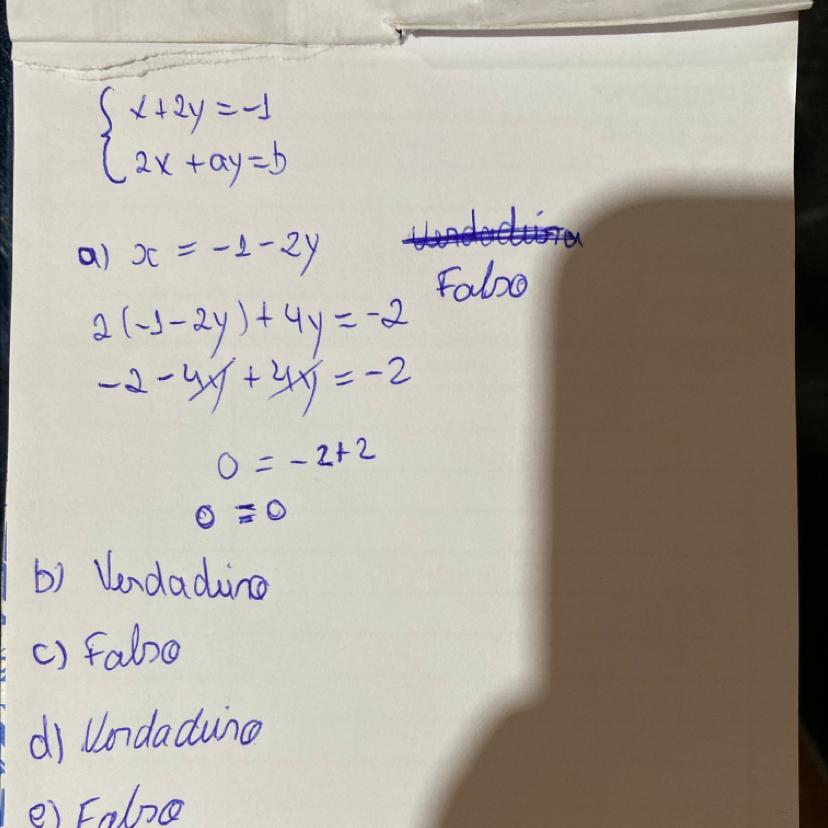 x+2y=-1
2x+ay=b
a) x = -1-2y
Verdadeira
Falso
2(-1-2y)+4y=-2
-2-4y+4y=-2
0=-2+2
0=0
b) Verdadeiro
c) Falso
d) Verdadeiro
e) Falso